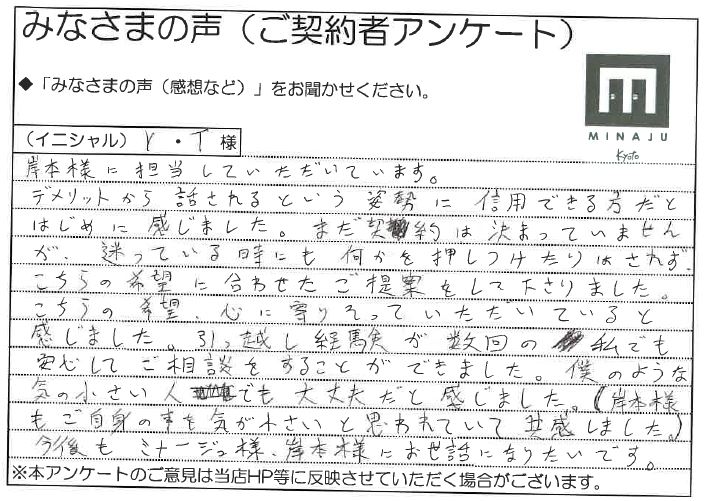 みなさまの声（ご契約者アンケート）
◆「みなさまの声（感想など）」をお聞かせください。
MINAJU
Kyoto
（イニシャル） Y・T 様
岸本様に担当していただいています。
デメリットから話されるという姿勢に信用できる方だと
はじめに感じました。まだ契約は決まっていません
が、迷っている時にも何かを押しつけたりはされず、
こちらの希望に合わせたご提案をして下さりました。
こちらの希望、心に寄りそっていただいていると
感じました。引っ越し経験が数回の私でも
安心してご相談をすることができました。僕のような
気の小さい人でも大丈夫だと感じました。（岸本様
もご自身の事を気が小さいと思われていて共感しました。）
今後もミナージュ様、岸本様にお世話になりたいです。
※本アンケートのご意見は当店HP等に反映させていただく場合がございます。